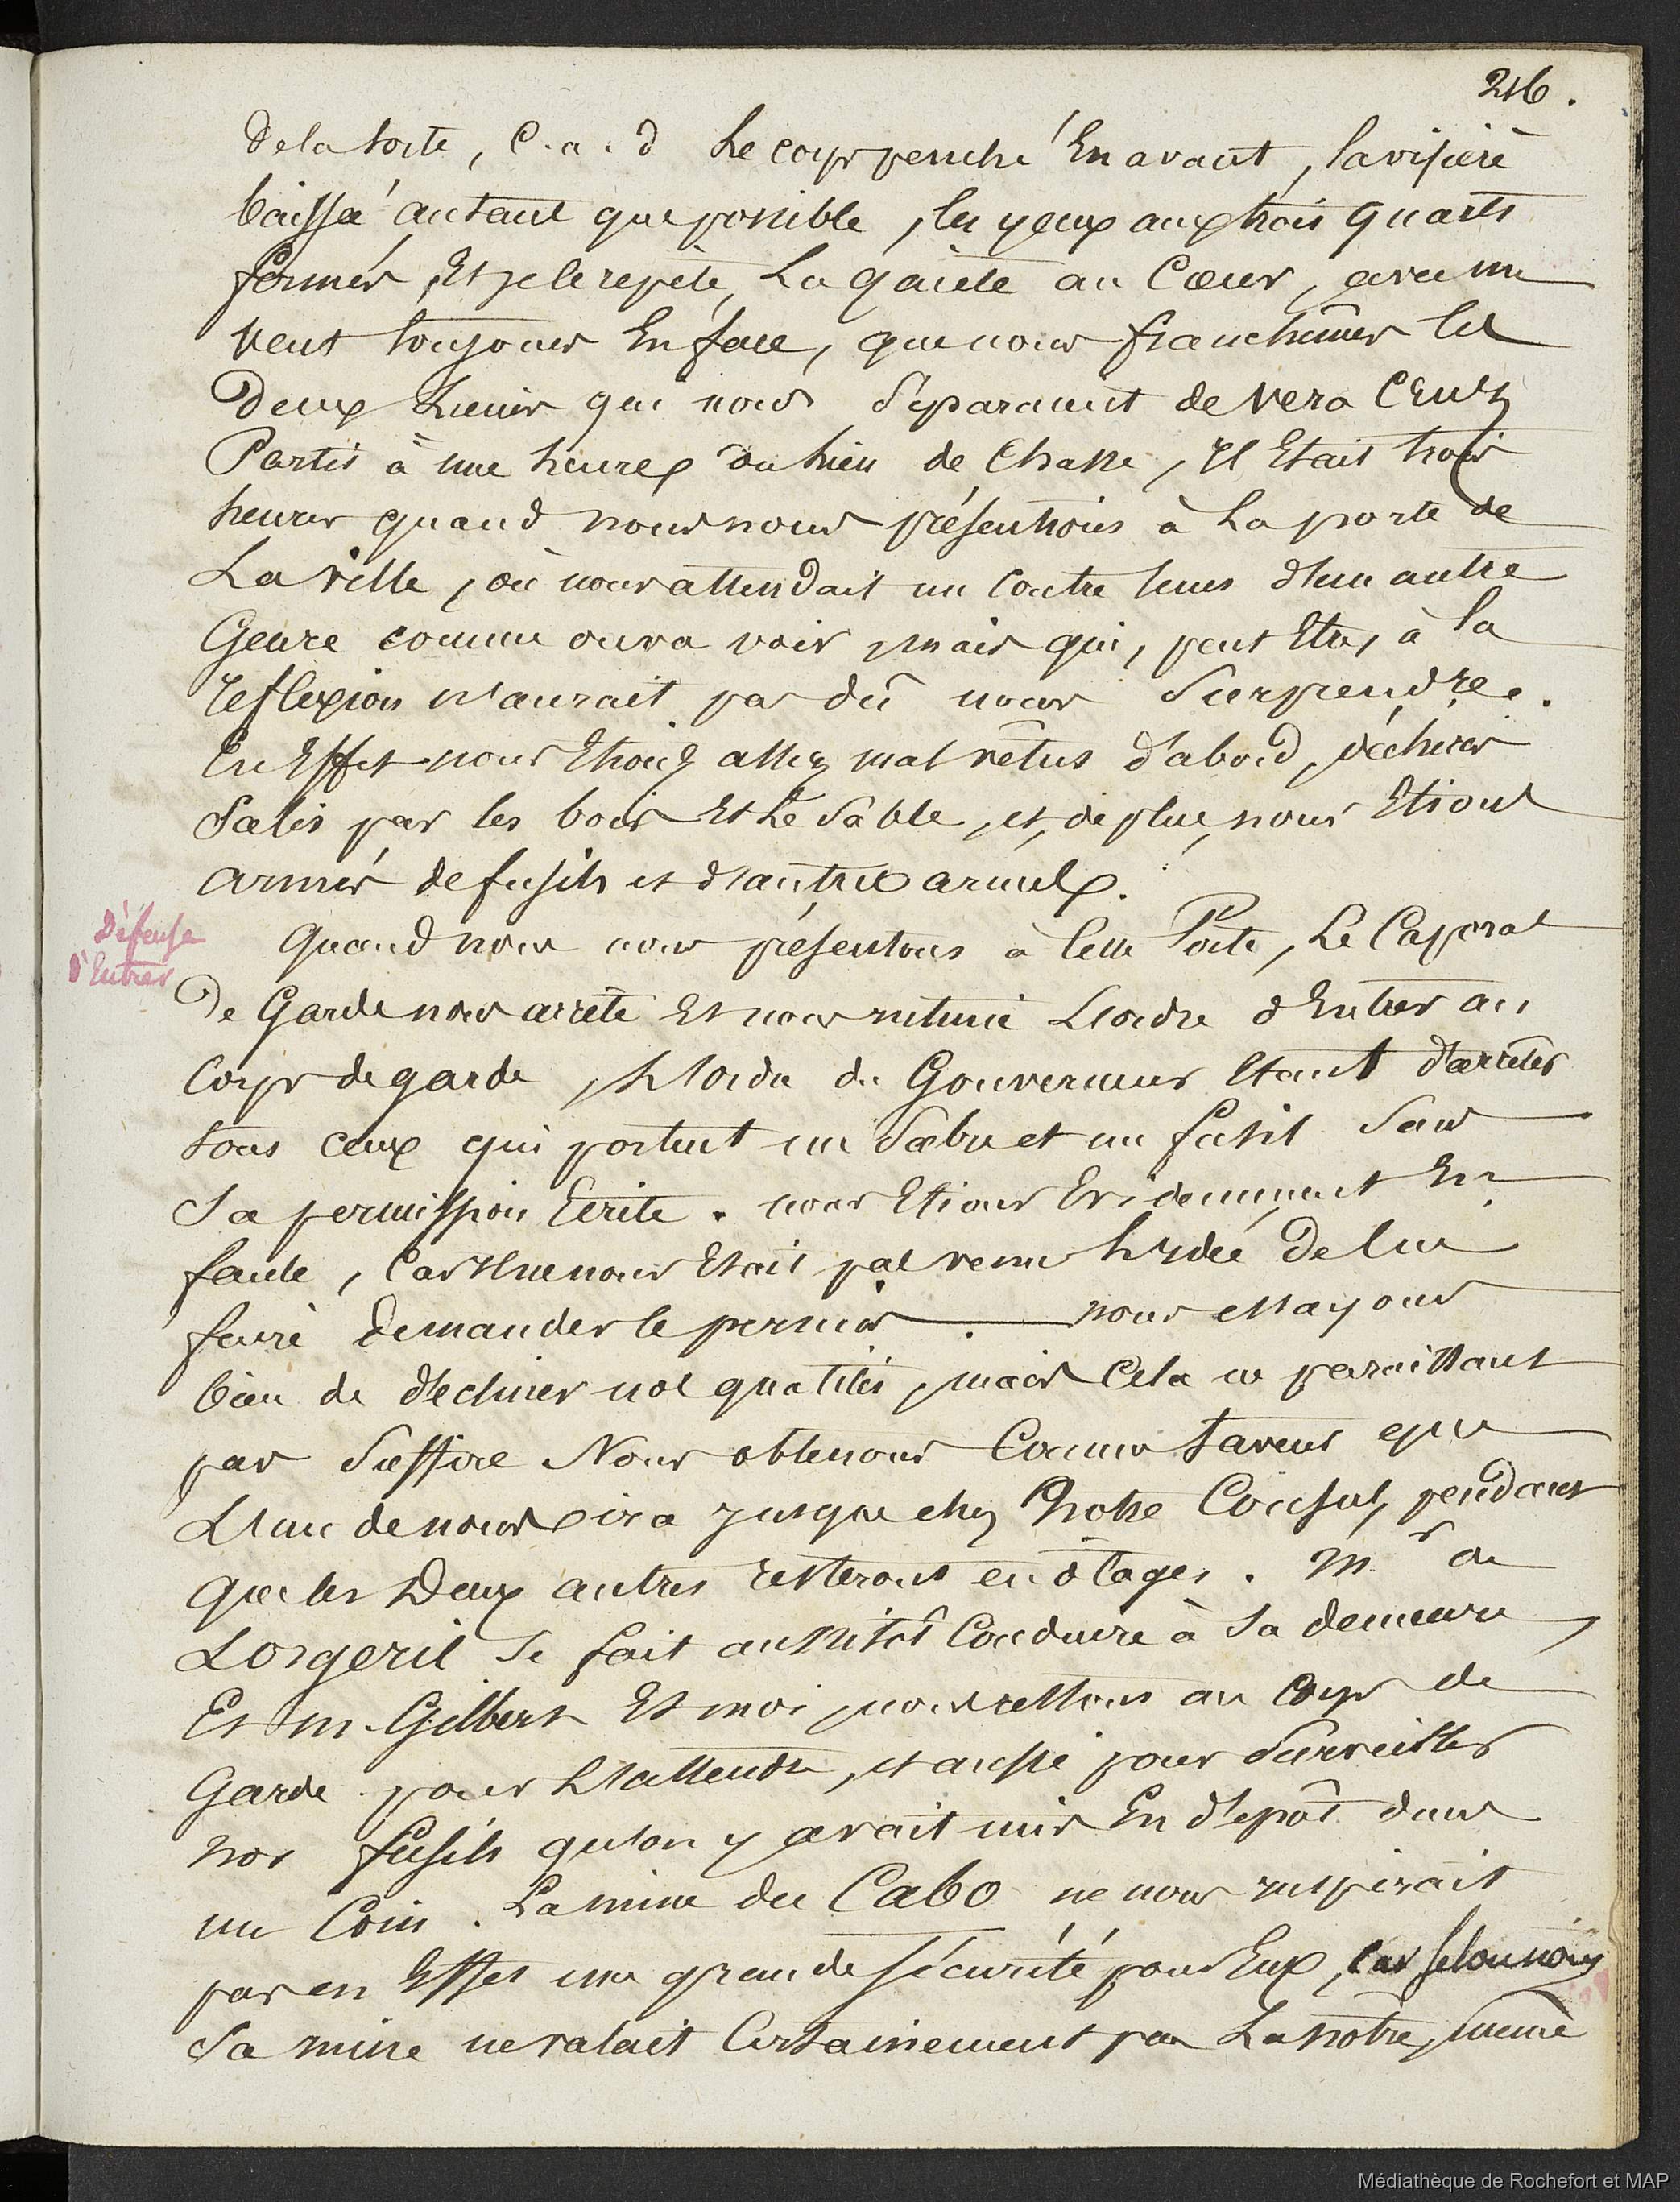 216.
de la sorte, C. a. d Le corps penché En avant, la visière
baissée autant que possible, les yeux aux trois quarts
fermés, Et je le repète, La gaieté au Cœur, avec un
vent toujours En face, que nous franchîmes les
Deux Lieues qui nous Séparaient de Vera Cruz
Partis à une heure du lieu de Chasse, Il Etait trois
heures quand nous nous présentions à La porte de
La ville, où nous attendait un Contre tems d'un autre
Genre comme on va voir, mais qui, peut Etre, à la
reflexion n'aurait pas dû nous Surprendre.
En Effet nous Etions assez mal vêtus d'abord, déchirés
Salis par les bois Et Le Sable, et, de plus, nous Etions
armés de fusils et d'autres armes.
Défense
d'Entrer
Quand nous nous présentons à cette Porte, Le Caporal
De Garde nous arrête Et nous intime L'ordre d'Entrer au
Corps de garde, L'ordre du Gouverneur Etant d'arrêter
tous ceux qui portent un Sabre et un fusil Sans
Sa permission Ecrite. nous Etions Evidemment En
faute, Car Il ne nous Etait pas venu L'Idée De lui
faire Demander le permis. nous essayons
bien de décliner nos qualités, mais Cela ne paraissant
pas Suffire Nous obtenons Comme faveur que
L'un de nous ira jusque chez Notre Consul, pendant
que les Deux autres resteront en otages. Mr de
Lorgeril Se fait aussitôt Conduire à Sa demeure,
Et M. Gilbert Et moi, nous restons au Corps de
Garde pour L'attendre, et aussi pour Surveiller
nos fusils qu'on y avait mis En dépôt dans
un Coin. La mine du Cabo ne nous inspirait
pas en Effet une grande sécurité pour Eux, Car selon nous
Sa mine ne valait Certainement pas La nôtre, même
Médiathèque de Rochefort et MAP